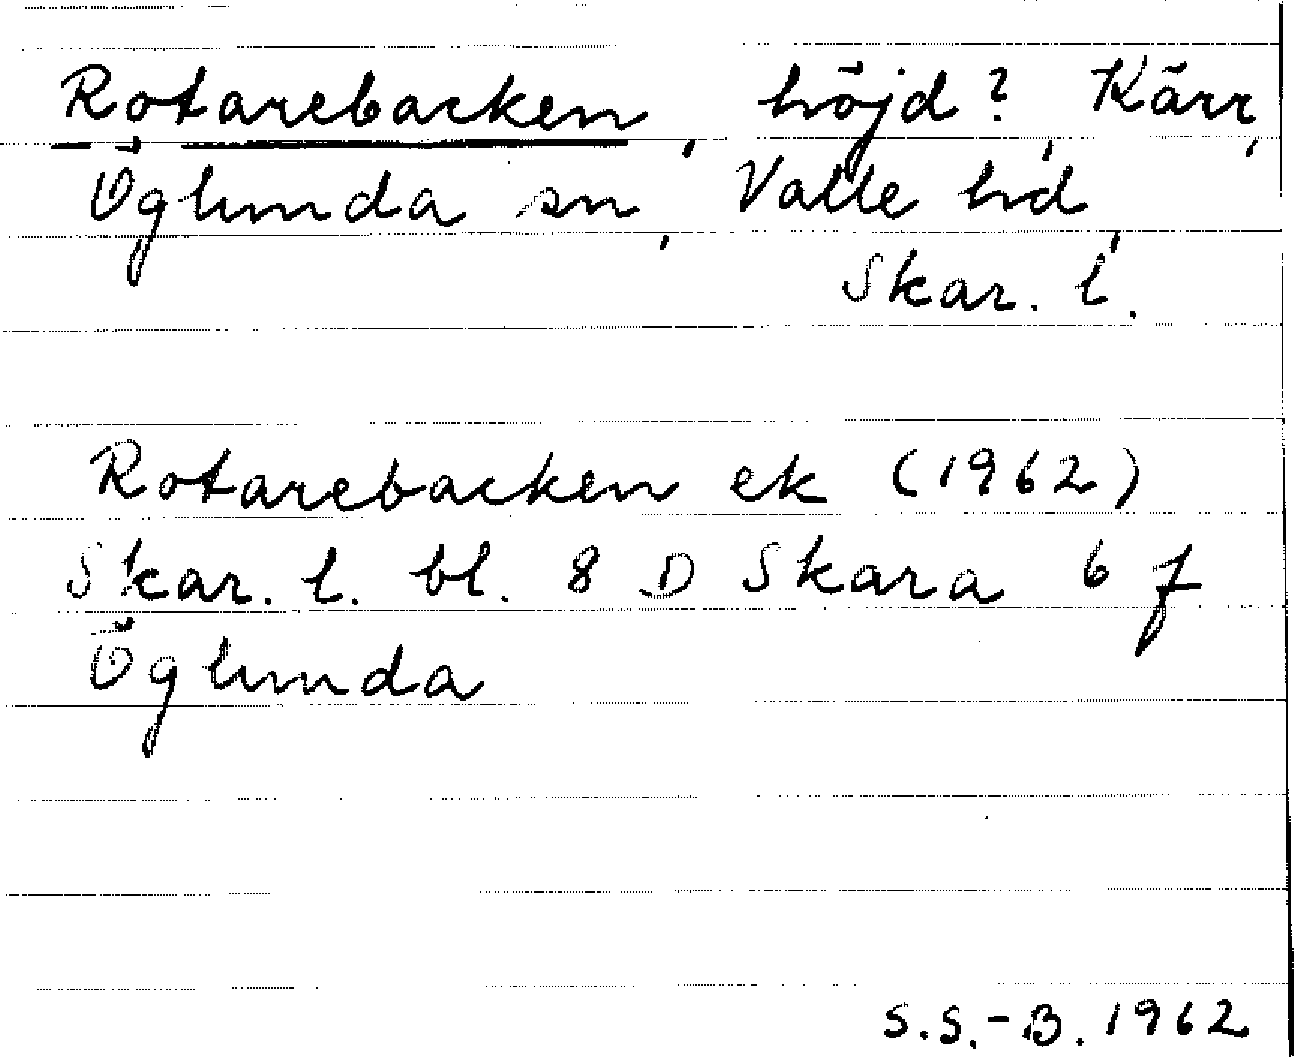 Rotarebacken, höjd?, Kärr,
Öglunda sn, Valle hd,
Skar. l.
Rotarebacken ek (1962)
Skar. l. bl. 8 D Skara 6 f
Öglunda
S.S.-B. 1962